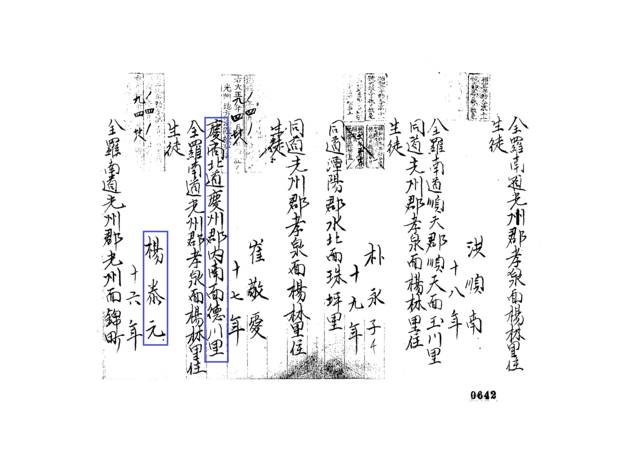 全羅南道光州郡孝泉面楊林里住
生徒
洪順南
十八年
全羅南道順天郡順天面玉川里
同道光州郡孝泉面楊林里住
生徒
朴永子
十九年
同道潭陽郡水北面珠坪里
同道光州郡孝泉面楊林里住
生徒
崔敬愛
十七年
慶南北道慶州郡内南面德川里
全羅南道光州郡孝泉面楊林里住
生徒
楊泰元
十六年
全羅南道光州郡光州面錦町
0642